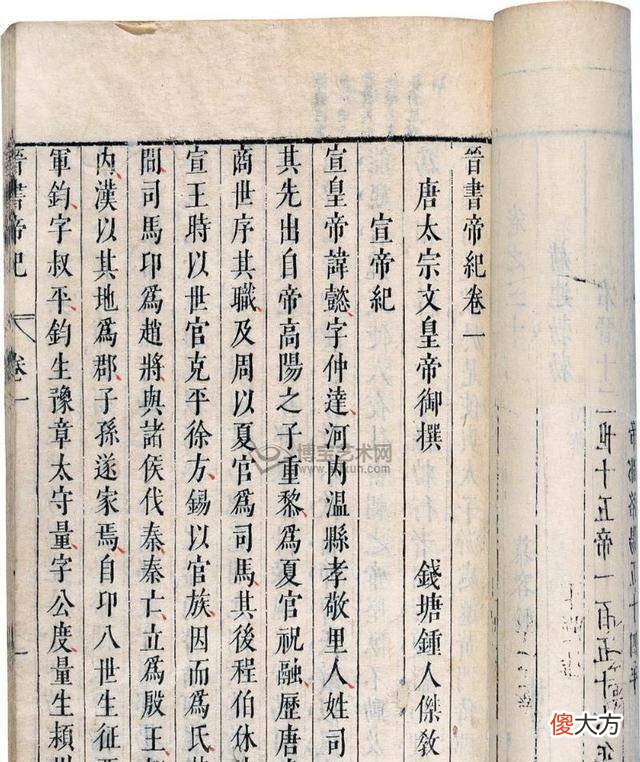 晉書帝紀卷一
唐太宗文皇帝御撰 錢塘鍾人傑敎
宣帝紀
宣皇帝諱懿字仲達河內溫縣孝敬里人姓司
其先出自帝高陽之子重黎爲夏官祝融歷唐
商世序其職及周以夏官爲司馬其後程伯休
宣王時以世官克平徐方錫以官族因而爲氏
間司馬卬爲趙將與諸侯伐秦秦亡立爲殷王
內漢以其地爲郡子孫遂家焉自卬八世生征
軍鈞字叔平鈞生豫章太守量字公度量生潁
晉書帝紀 卷一
世十五帝一百五十
博宝艺术网
傻大方